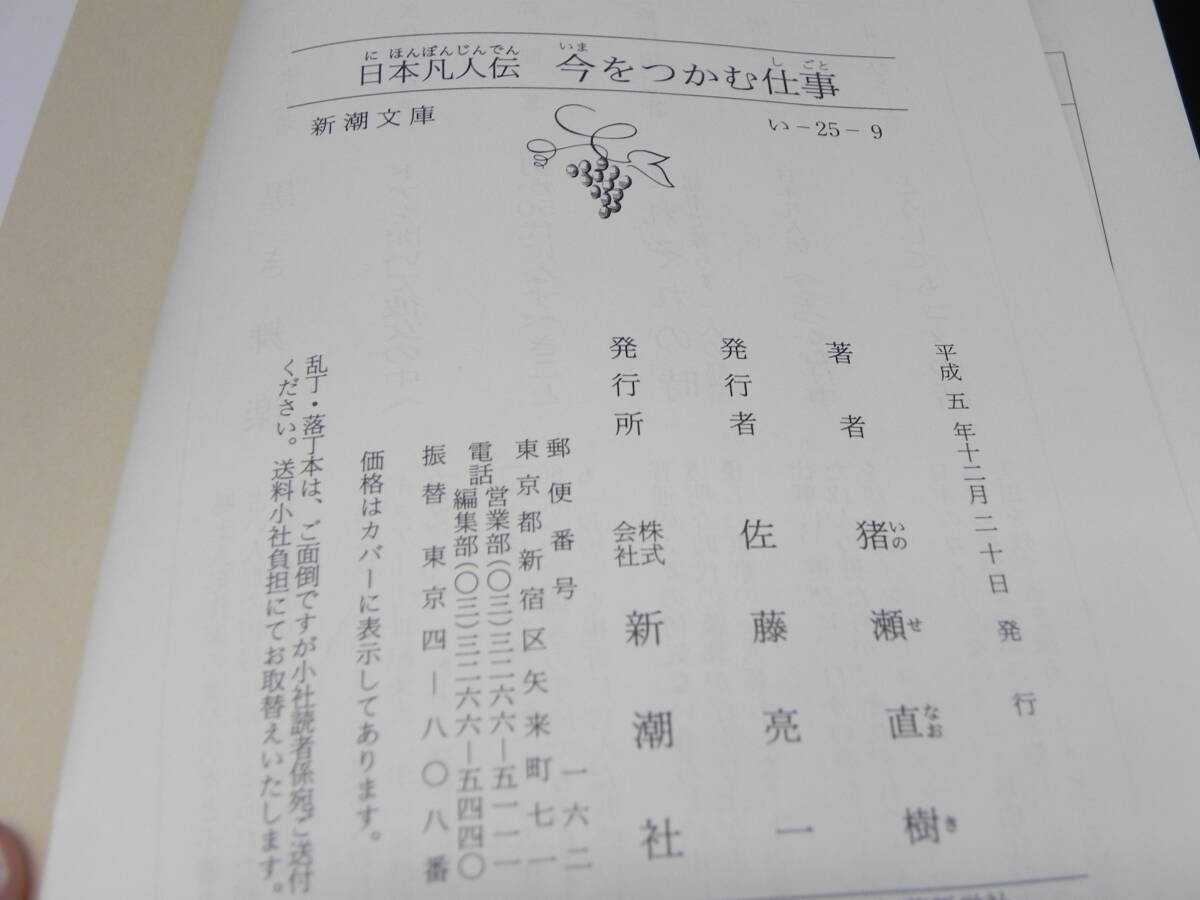 に ほんぼんじんでん いま し ごと
日本凡人伝 今をつかむ仕事
新潮文庫 い-25-9
平成五年十二月二十日発行
著者 猪瀬直樹
いの せ なお き
発行者 佐藤亮一
発行所 株式会社 新潮社
郵便番号 一六二
東京都新宿区矢来町七一
電話 営業部(〇三)三二六六—五一一一
編集部(〇三)三二六六—五四四〇
振替 東京四—八〇八番
価格はカバーに表示してあります。
乱丁・落丁本は、ご面倒ですが小社読者係宛ご送付
ください。送料小社負担にてお取替えいたします。